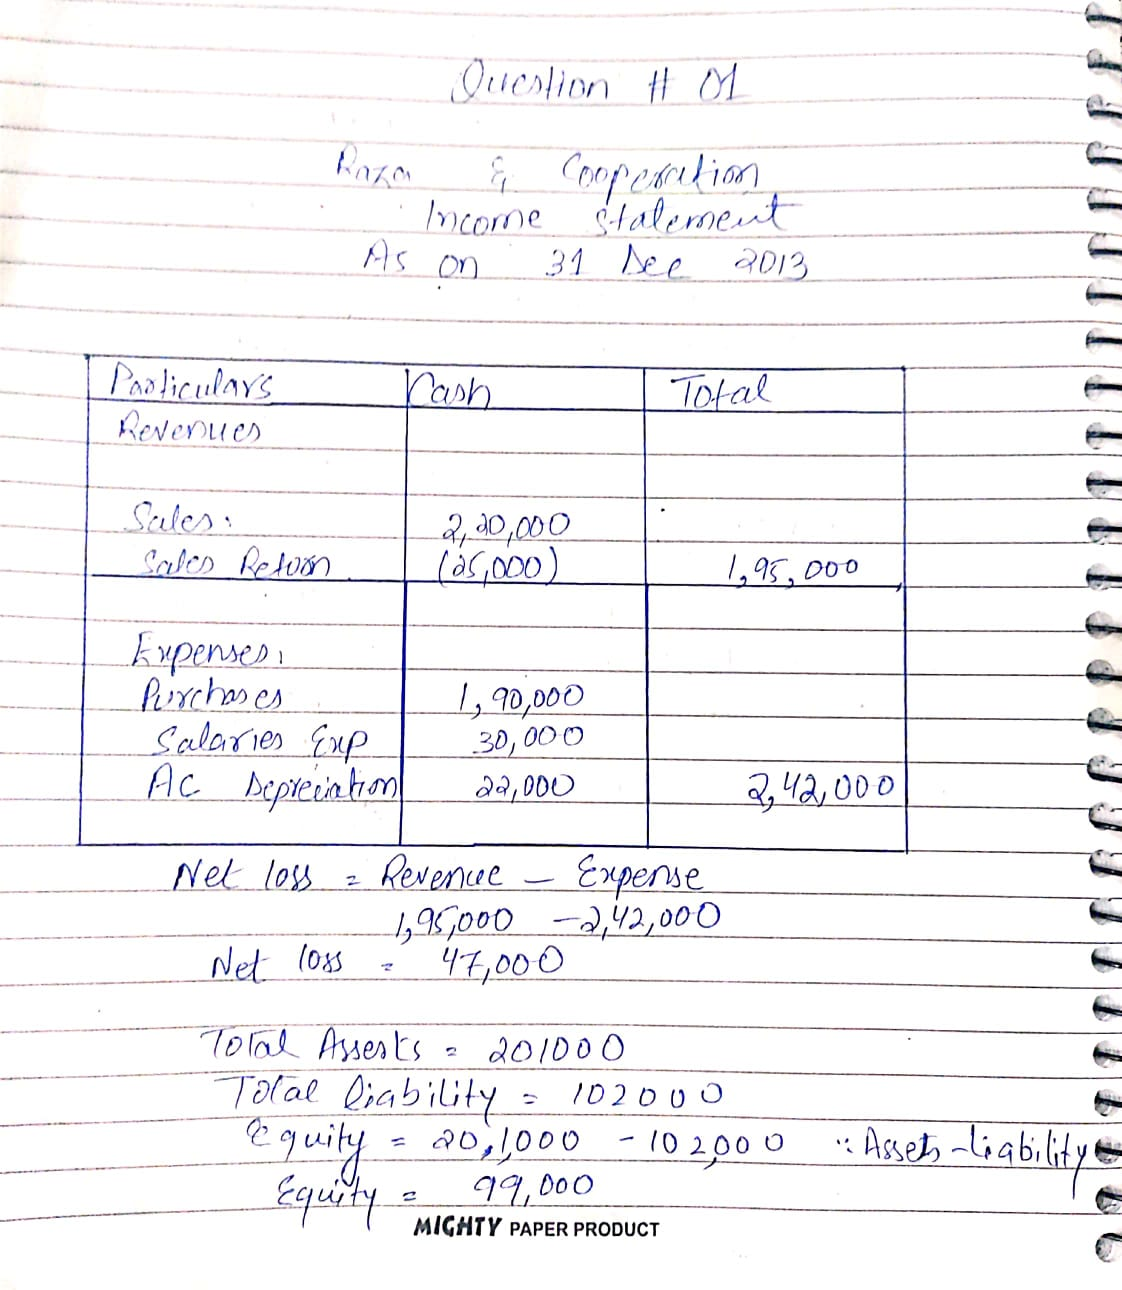 Question # 01
Raza & Cooperation
Income Statement
As on 31 Dec 2013
Particulars Cash Total
Revenues
Sales: 2,20,000
Sales Return (25,000) 1,95,000
Expenses:
Purchases 1,90,000
Salaries Exp 30,000
AC Depreciation 22,000 2,42,000
Net loss = Revenue - Expense
1,95,000 - 2,42,000
Net loss = 47,000
Total Assests = 201000
Total liability = 102000
Equity = 20,1,000 - 102,000 ∵ Assets - liability
Equity = 99,000
MIGHTY PAPER PRODUCT